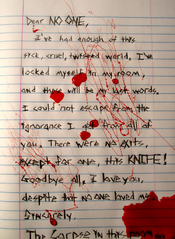 Dear NO ONE,
I've had enough of this
sick, cruel, twisted world, I've
locked myself in my room,
and these will be my last words.
I could not escape from the
ignorance I got from all of
you. There were no exits,
except for one, this KNIFE!
Goodbye all, I love you,
despite that no one loved me.
Sincerely,
The Corpse in this room